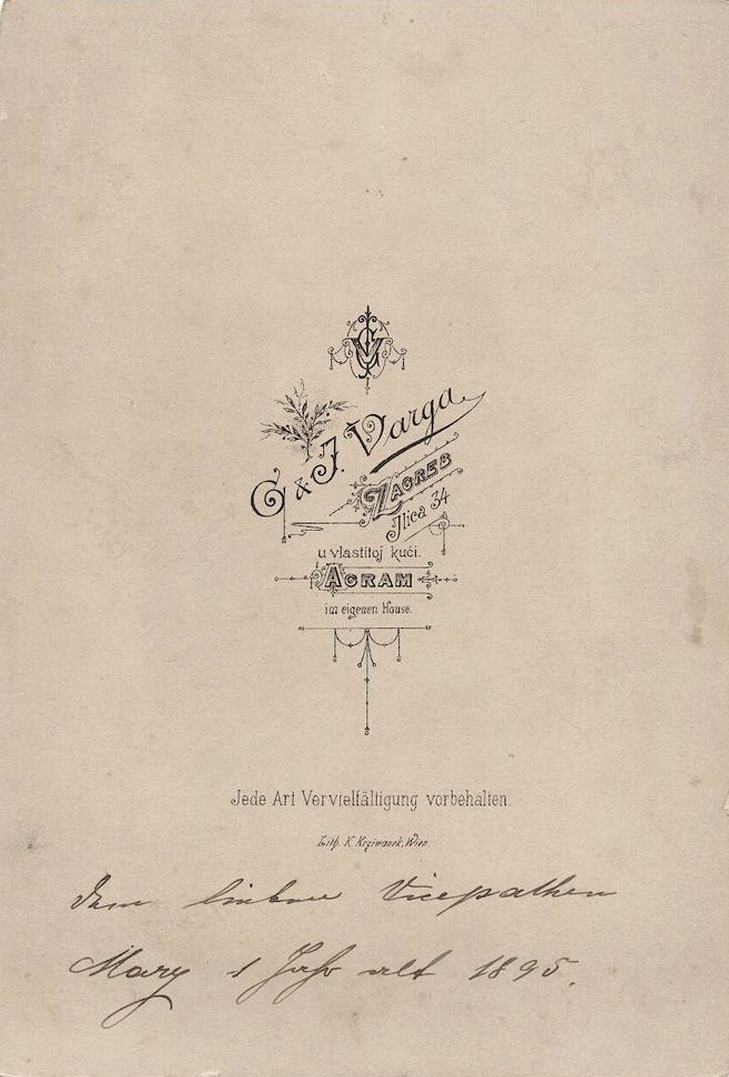 GV
G & J. Varga
Zagreb
Ilica 34
u vlastitoj kući.
Agram
im eigenen Hause.
Jede Art Vervielfältigung vorbehalten
Lith. K. Krziwanek, Wien.
Dem lieben Vicepathen
Mary 1 Jahr alt 1895.